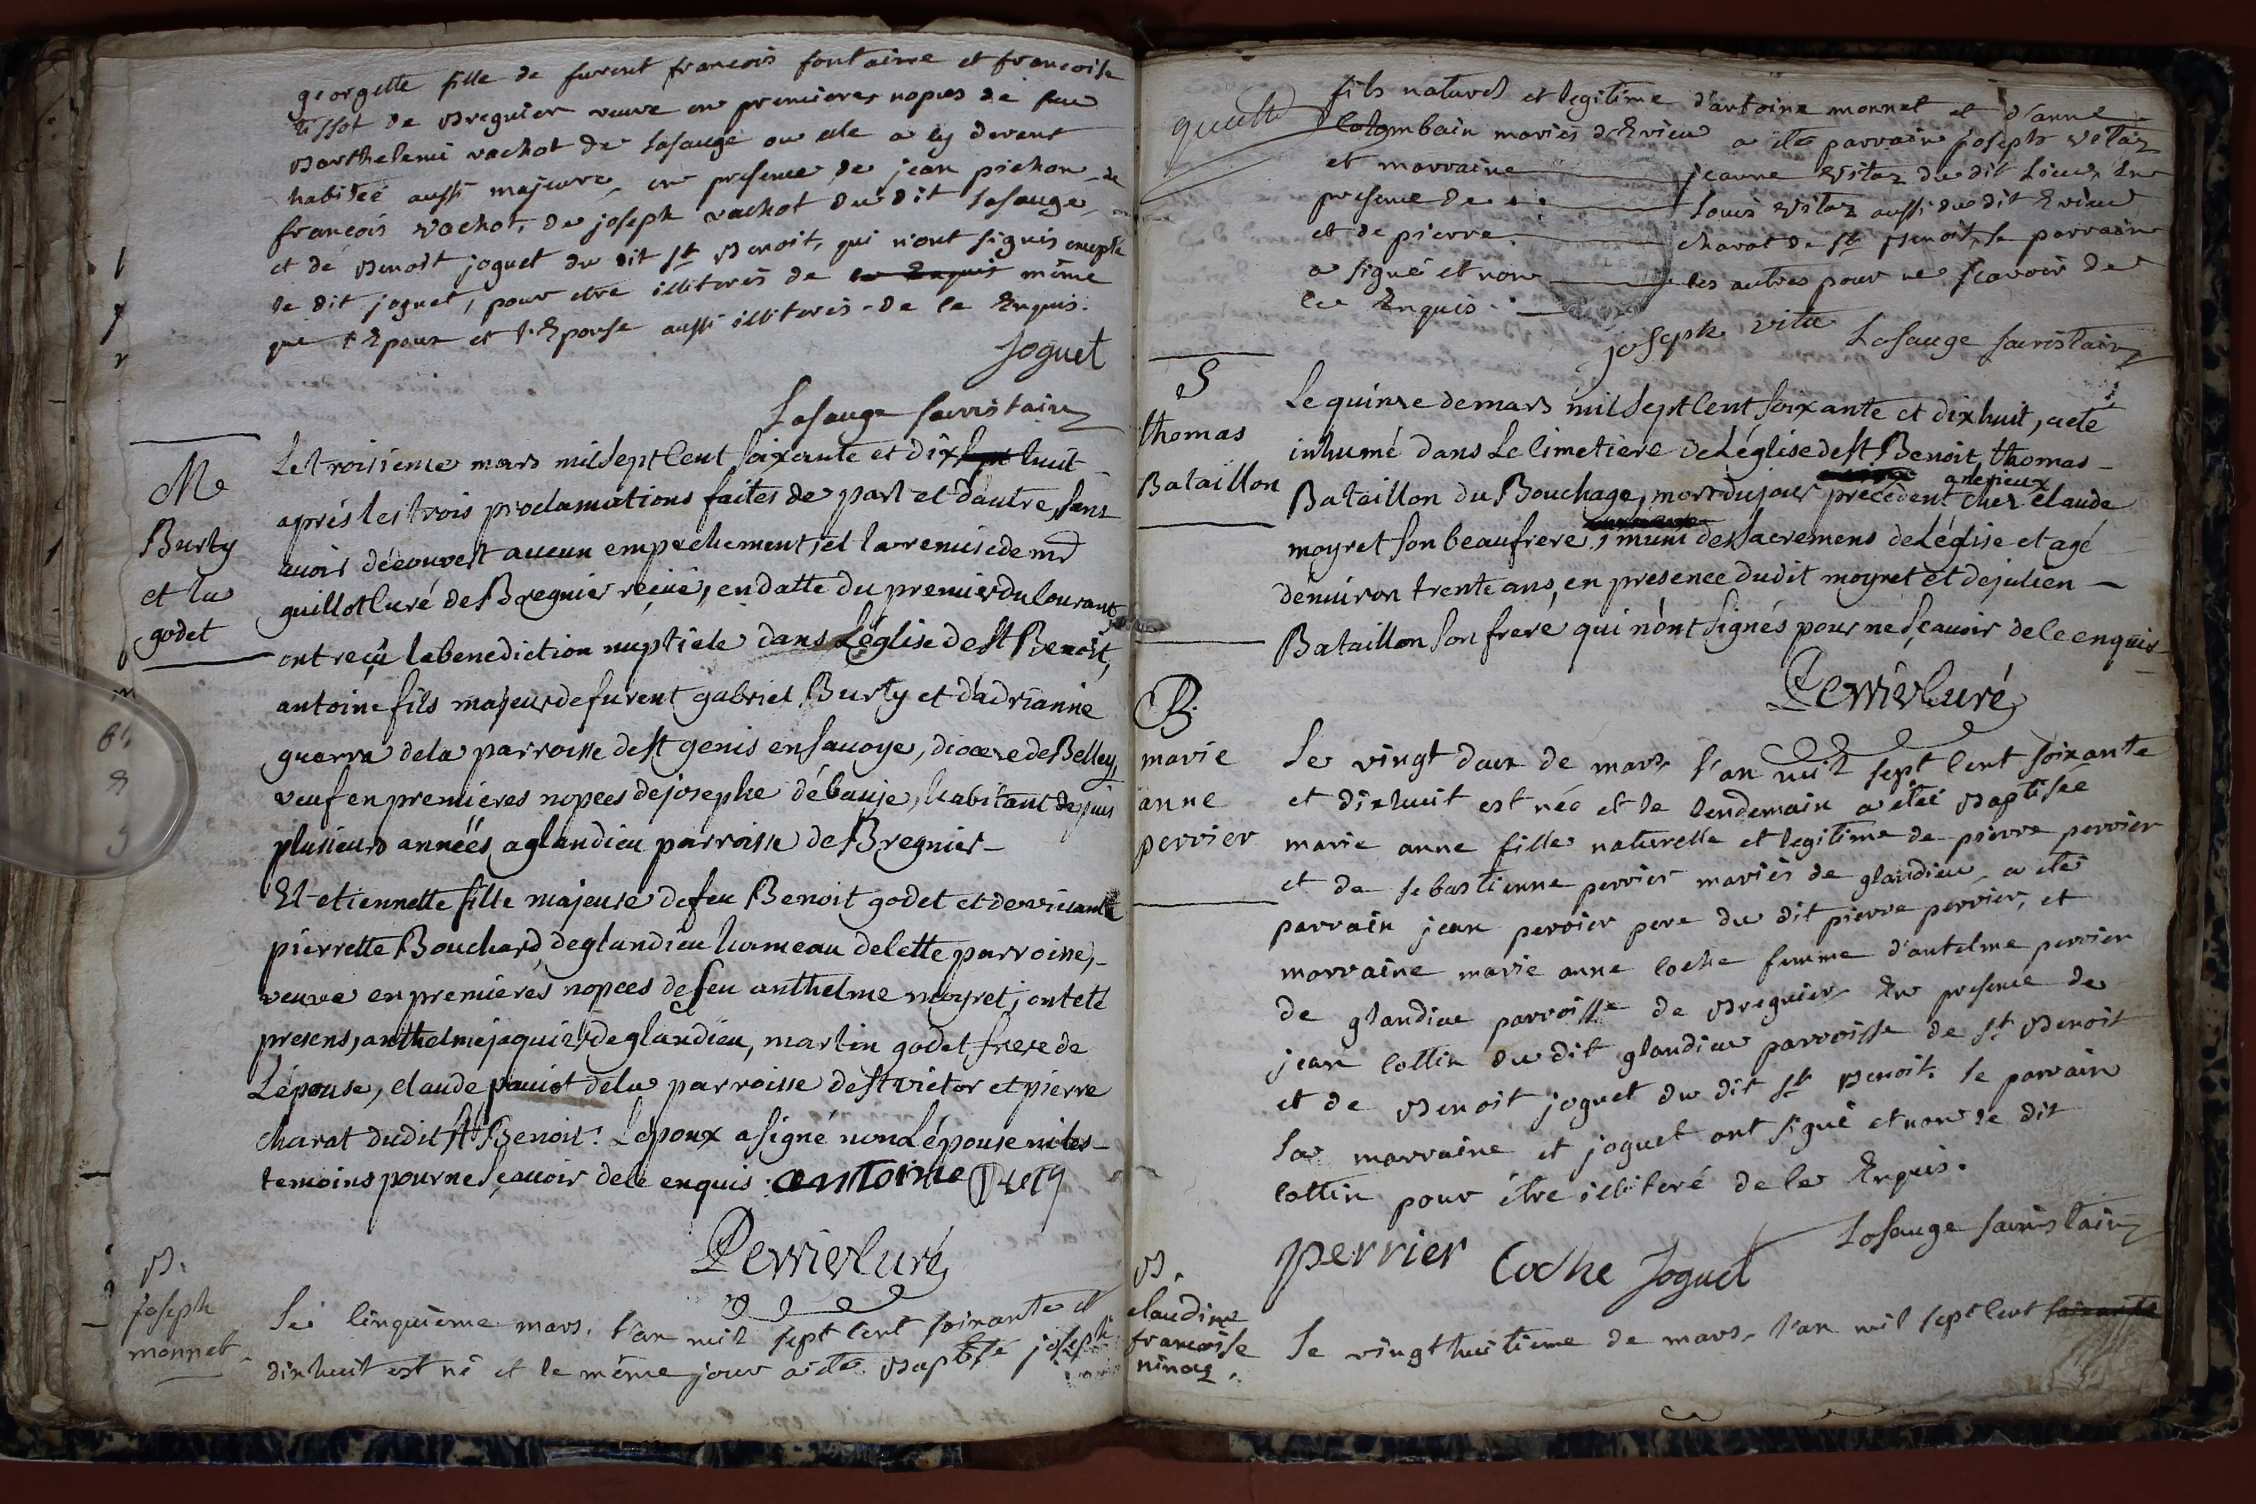 georgette fille de furent francois fontaine et francoise
tissot de Bregnier veuve en premieres nopces de feu
Barthelemi vachot de Lasauge ou elle a cy devent
habitée aussi majeure, en presence de jean pichon de
francois vachot, de joseph vachot du dit Lasauge
et de Benoit joguet du dit St Benoit, qui n'ont signés excepté
le dit joguet, pour etre illiterés de ce Enquis même
que l'Epoux et l'Epouse aussi illiterés de ce Enquis.
Joguet
Lasauge sacristain
M
Burty
et la
godet
Le troisieme mars mil sept Cent soixante et dix sept huit
aprés les trois proclamations faites de part et d'autre, sans
avoir découvert aucun empechement, et la remise de mr
guillot Curé de Bregnier reçue, en datte du premier du Courant,
ont reçu la benediction nuptiale dans L'église de St Benoit,
antoine fils majeur de furent gabriel Burty et d'adrianne
guerra de la parroisse de St genis en Savoye, diocese de Belley,
veuf en premieres nopces de josephe débauje, habitant depuis
plusieurs années a glandieu parroisse de Bregnier
Et etiennette fille majeure de feu Benoit godet et de vivante
pierrette Bouchard, de glandieu hameau de Cette parroisse,
veuve en premieres nopces de feu anthelme moyret, ont eté
presens, anthelme jaquier de glandieu, martin godet frere de
L'épouse, claude paviot de la parroisse de St victor et pierre
charat dudit St Benoit. L'epoux a signé non L'épouse ni les
temoins pour ne sçavoir de ce enquis. antoine Burty
Perrier Curé
B.
joseph
monnet
Le Cinquième mars, l'an mil sept Cent soixante et
dixhuit est né et le même jour a eté Baptisé joseph
fils naturel et legitime d'antoine monnet et d'anne
Colombain mariés d'Evieu a eté parrain joseph vitaz
et marraine jeanne vitaz du dit Lieu, En
presence de Louis vitaz aussi du dit Evieu
et de pierre charat de St Benoit, le parrain
a signé et non les autres pour ne scavoir de
ce Enquis.
joseph vita Lasauge sacristain
S
thomas
Bataillon
Le quinze de mars mil sept Cent soixante et dix huit, a eté
inhumé dans Le Cimetiere de L'église de St Benoit, thomas
Bataillon du Bouchage, mort du jour precedent chez claude
moyret son beaufrere, muni des Sacremens de L'église et agé
d'environ trente ans, en presence dudit moyret et de julien
Bataillon son frere qui n'ont signés pour ne sçavoir de ce enquis
Perrier Curé
B.
marie
anne
perrier
Le vingt deux de mars, l'an mil sept Cent soixante
et dixhuit est née et le lendemain a eteé Baptisée
marie anne fille naturelle et legitime de pierre perrier
et de sebastienne perrier mariés de glandieu, a eté
parrain jean perrier pere du dit pierre perrier, et
marraine marie anne Coche femme d'antelme perrier
de glandieu parroisse de Bregnier En presence de
jean Cottin du dit glandieu parroisse de St Benoit
et de Benoit joguet du dit St Benoit. Le parrain
La marraine et joguet ont signé et non le dit
Cottin pour être illiteré de ce Enquis.
Lasauge sacristain
perrier Coche Joguet
B.
claudine
francoise
ninoz
Le vingthuitieme de mars, l'an mil sept Cent soixante